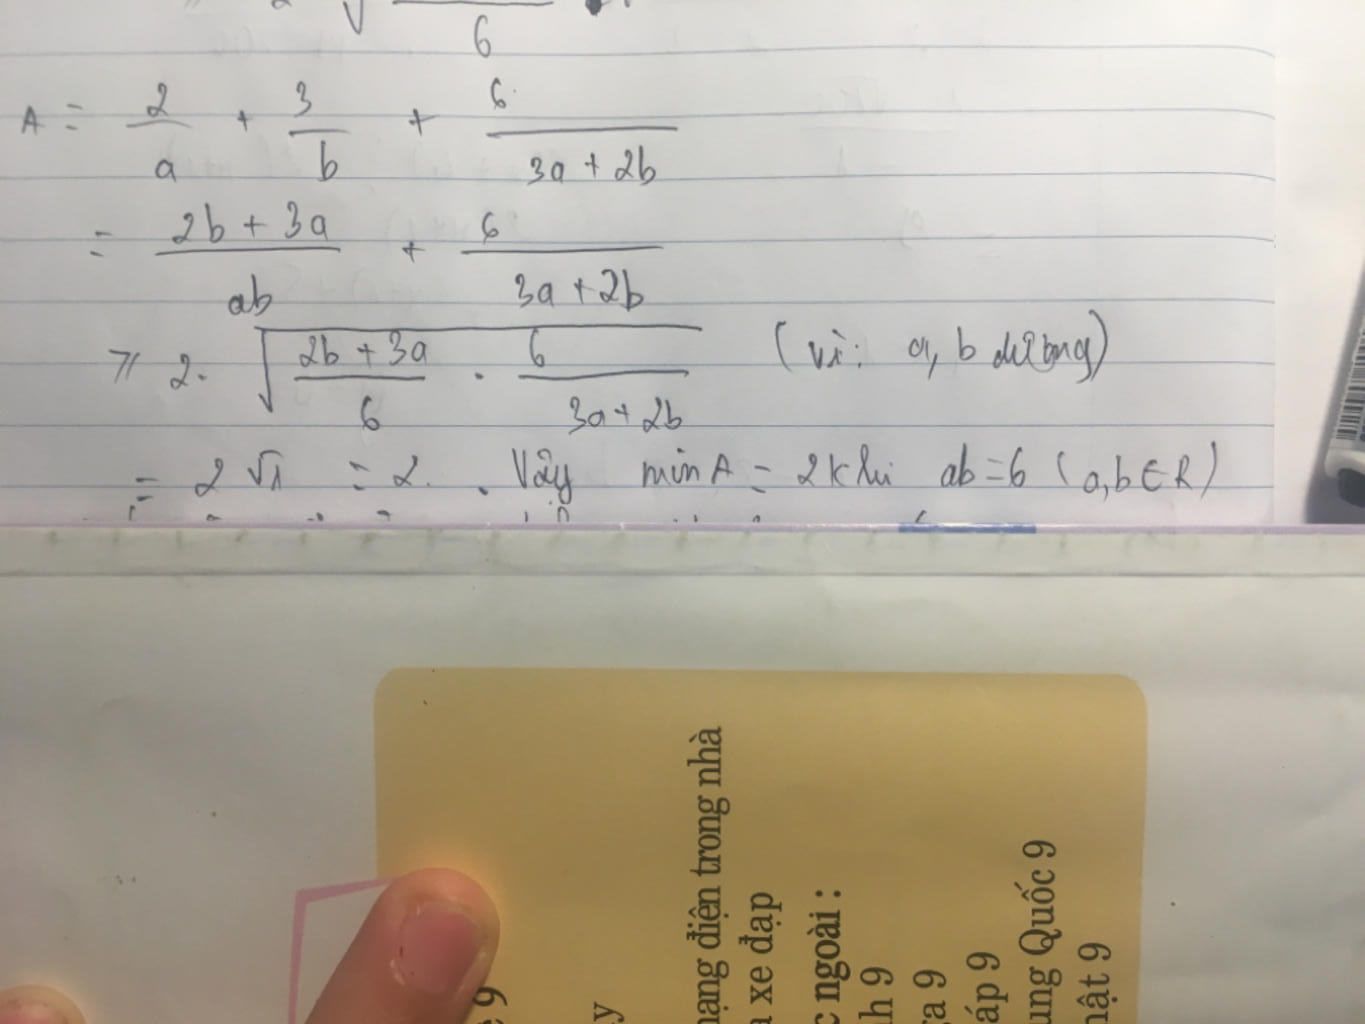 6
A = 2/a + 3/b + 6/(3a + 2b)
= (2b + 3a)/ab + 6/(3a + 2b)
≥ 2. √((2b + 3a)/6 . 6/(3a + 2b)) (vì: a, b dương)
= 2√1 = 2. . Vậy min A = 2 khi ab = 6 (a, b ∈ R)
mạng điện trong nhà
xe đạp
ngoài :
9
9
9
Quốc 9
9
9